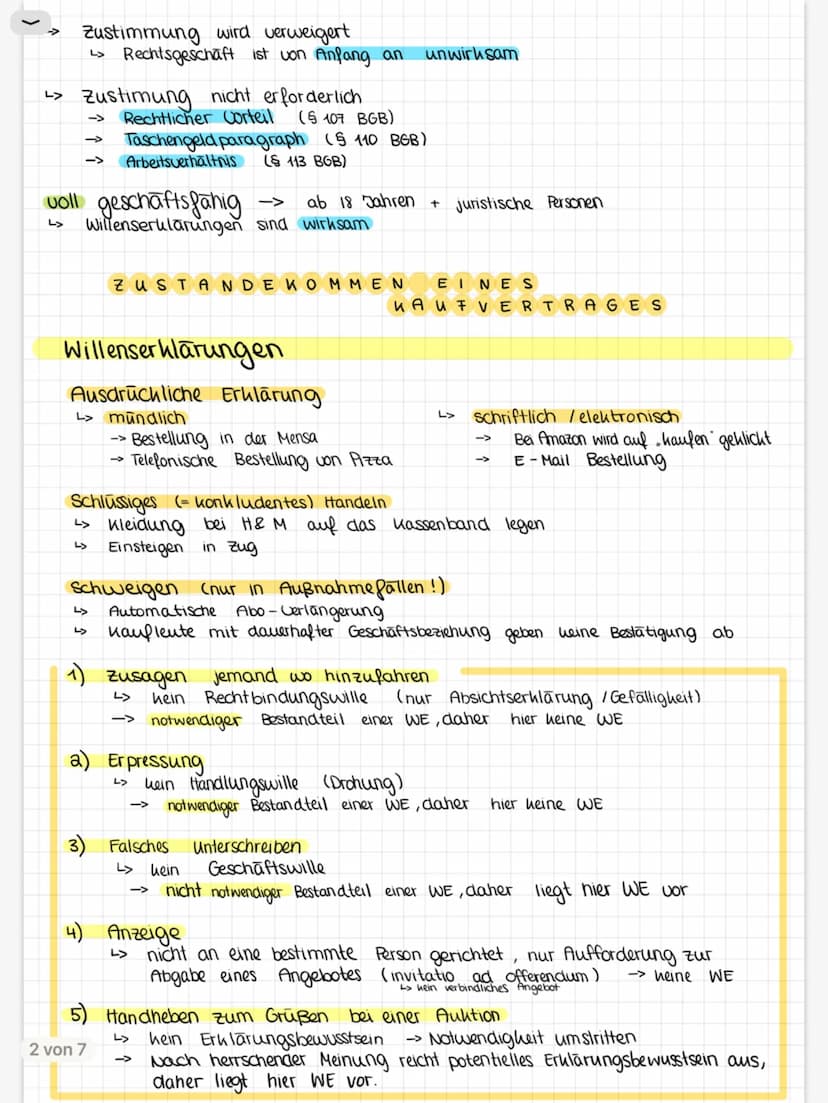 ↳ Zustimmung wird verweigert
↳ Rechtsgeschäft ist von Anfang an unwirksam
↳ Zustimung nicht erforderlich
→ Rechtlicher Vorteil (§ 107 BGB)
→ Taschengeldparagraph (§ 110 BGB)
→ Arbeitsverhältnis (§ 113 BGB)
voll geschäftsfähig → ab 18 Jahren + juristische Personen
↳ Willenserklärungen sind wirksam
ZUSTANDEKOMMEN EINES
KAUFVERTRAGES
Willenserklärungen
Ausdrückliche Erklärung
↳ mündlich
→ Bestellung in der Mensa
→ Telefonische Bestellung von Pizza
↳ schriftlich / elektronisch
→ Bei Amazon wird auf „kaufen" geklickt
→ E-Mail Bestellung
Schlüssiges (= konkludentes) Handeln
↳ Kleidung bei H&M auf das Kassenband legen
↳ Einsteigen in Zug
Schweigen (nur in Außnahmefällen!)
↳ Automatische Abo-Verlängerung
↳ Kaufleute mit dauerhafter Geschäftsbeziehung geben keine Bestätigung ab
1) Zusagen jemand wo hinzufahren
↳ kein Rechtbindungswille (nur Absichtserklärung / Gefälligkeit)
→ notwendiger Bestandteil einer WE, daher hier keine WE
2) Erpressung
↳ kein Handlungswille (Drohung)
→ notwendiger Bestandteil einer WE, daher hier keine WE
3) Falsches unterschreiben
↳ kein Geschäftswille
→ nicht notwendiger Bestandteil einer WE, daher liegt hier WE vor
4) Anzeige
↳ nicht an eine bestimmte Person gerichtet, nur Aufforderung zur
Abgabe eines Angebotes (invitatio ad offerendum) → keine WE
↳ kein verbindliches Angebot
5) Handheben zum Grüßen bei einer Auktion
↳ kein Erklärungsbewusstsein → Notwendigkeit umstritten
→ Nach herrschender Meinung reicht potentielles Erklärungsbewusstsein aus,
daher liegt hier WE vor.
2 von 7